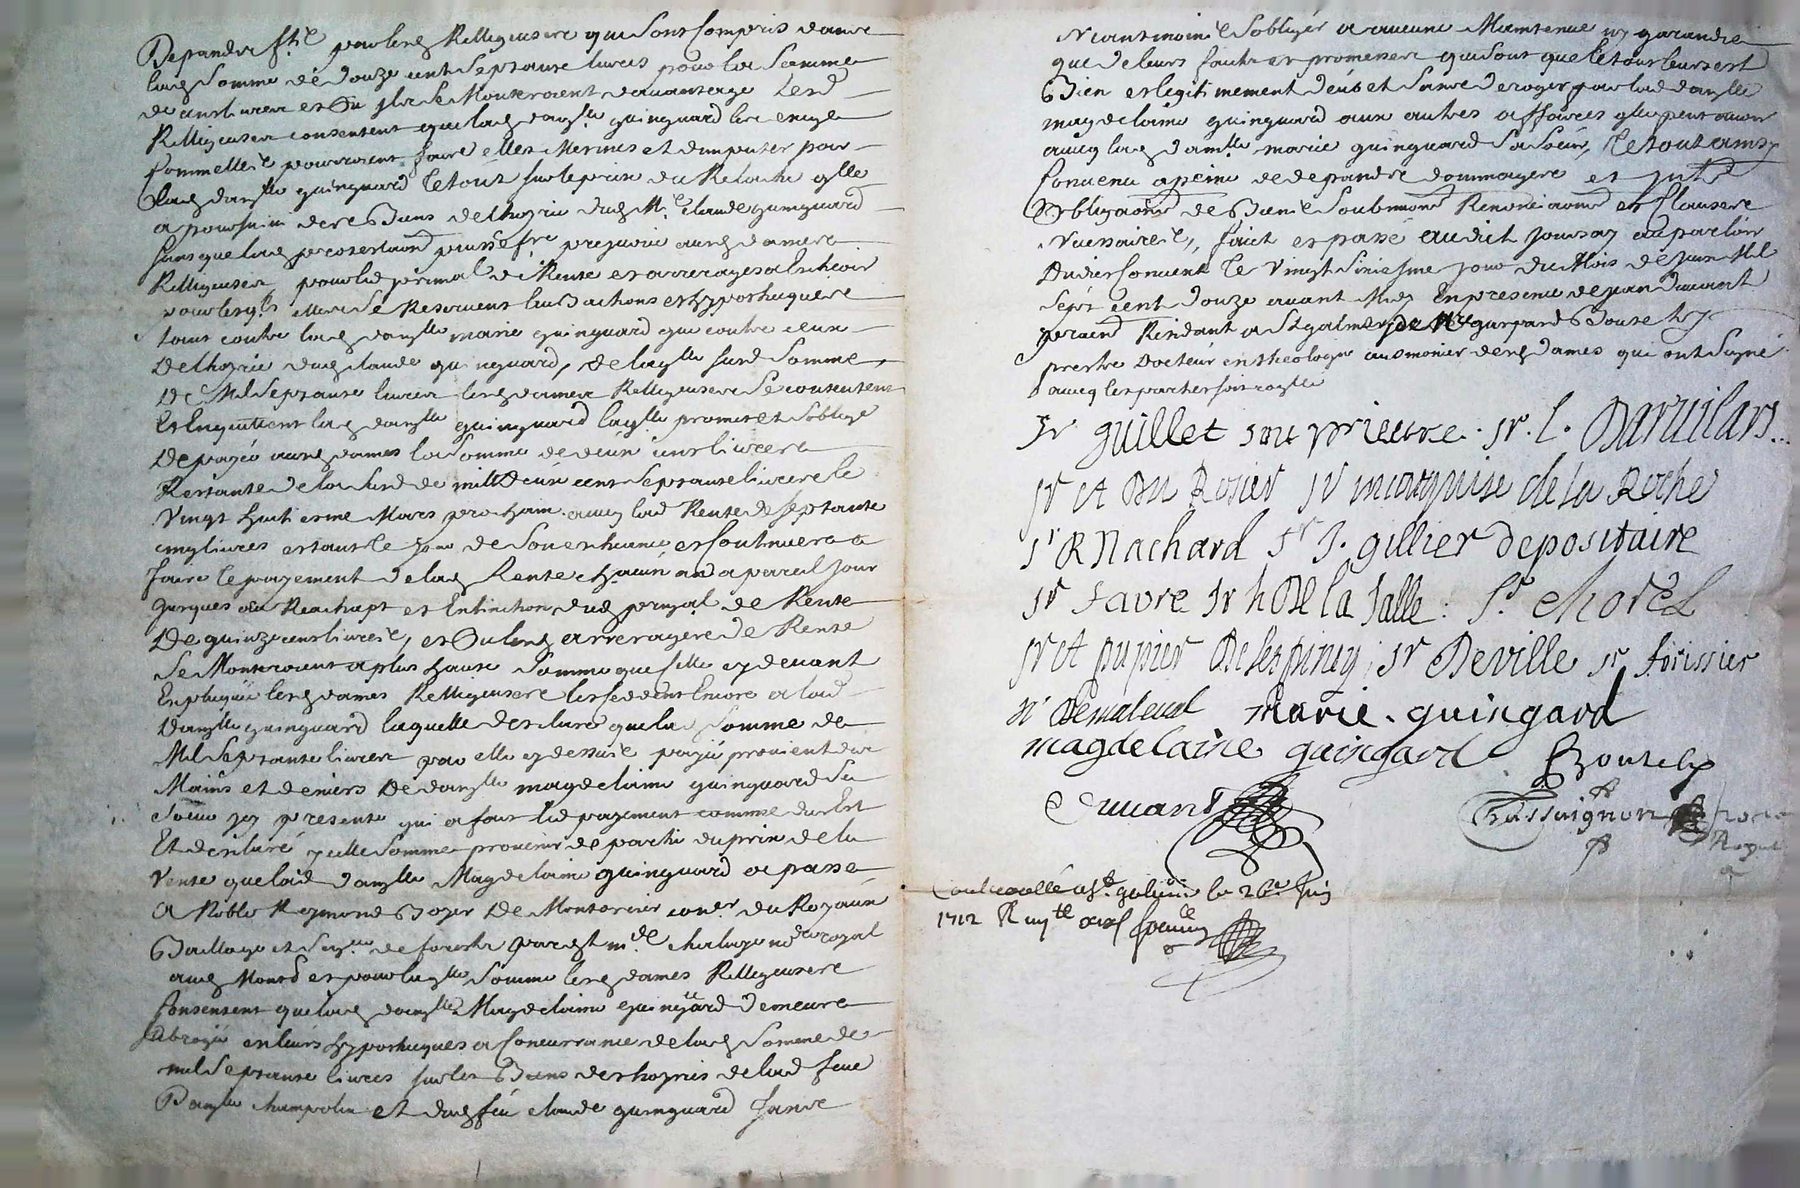 Depandre ft.e par lesd Relligeuses qui sont Compris dans
lad somme de douze cent septante livres pour la somme
de cens livres et ou ils se Monteroient davantage lesd
Relligeuses consentent que lad damlle guinguard les exige
Comme elles pourroient faire elles Mesmes et dimputer par
lad damlle guinguard le tout sur le prix du Relache qlle
a poursuivi des Biens de lhoirie dud Mr Claude guinguard
sans que lad puisse prejudice ausd dames
Relligeuses pour led prinal de Rente et arrerages a Escheoir
pour lesqls elles se Reservent leurs actions et hypotheques
tant contre lad damlle marie guinguard que contre ceux
De lhoirie dud claude guinguard, de laqlle susd somme
De Mil septante livres lesd dames Relligeuses se contentent
et En quittent lad damlle guinguard laqlle promet et soblige
De payer ausd dames la somme de deux cens livres
Restante de la susd de mill Deux cent septante livres le
Vingt huitiesme Mars prochain avec lad Rente de septante
cinq livres estant le jour de son escheance et Continuera a
faire le payement de lad Rente chacun an a pareil jour
jusques au Reachapt et Extinction dud prinpal de Rente
De quinze cens livres, et ou lesd arrerages de Rente
se Monteroient a plus haute somme que celle cy devant
Expliquée lesd dames Relligeuses les cedent Encore a lad
Damlle guinguard laquelle declare que la somme de
Mil septante livres par elle cy dessus payé provient des
Mains et deniers De damlle magdelaine guinguard sa
soeur icy presente qui a fait led payement comme dust Est
Et declaré icelle somme provenir de partie du prix de la
vente que lad damlle Magdelaine guinguard a passé
A Noble Reymond Boyer De Montorcier coner du Roy au
Baillage et de forests par est Me chaluze nore royal
aud Montd et pour laqlle somme lesd dames Relligeuses
Consentent que lad damlle Magdelaine guinguard demeure
subrogée en leurs hypotheques a Concurrance de lad somme de
mil septante livres sur les Biens des hoiries de lad feue
Damlle champolin et dud feu claude guinguard sans
Neantmoins sobliger a aucune Maintenue ny garandie
que de leurs faicts et promesses qui sont que le tout leurs est
Bien et legitimement deub et sans deroger par lad damlle
magdelaine guinguard aux autres affaires qlle peut avoir
avec lad damlle marie guinguard sa soeur, le tout ainsy
Convenu a peine de depandre dommages et Jntd
obligaons de Biens soubmons Renonciaons et Clauses
Necessaires, faict et passé audict jourzay au parloir
Dudict Convent le Vingt sixiesme jour du Mois de Juin Mil
sept cent douze avant Midy En presence de jean duvant
Residant a St galmier de Mre gaspard Boutely
prestre Docteur en theologie ausmonier desd dames qui ont signé
avec les parties sois
Sr guillet sou prieure. sr. l. Daruilars...
sr et Du Rosier sr marquise de la Roche
sr R Nachard Sr J. gillier depositaire
sr favre sr h De la salle. Sr chorel
sr et pupier De lespiney sr Deville sr forissier
sr Demaleval marie. guingard
magdelaine guingard Boutely
Duvant Chassaignon
Controollé a St galmier le 26e Juin
1712